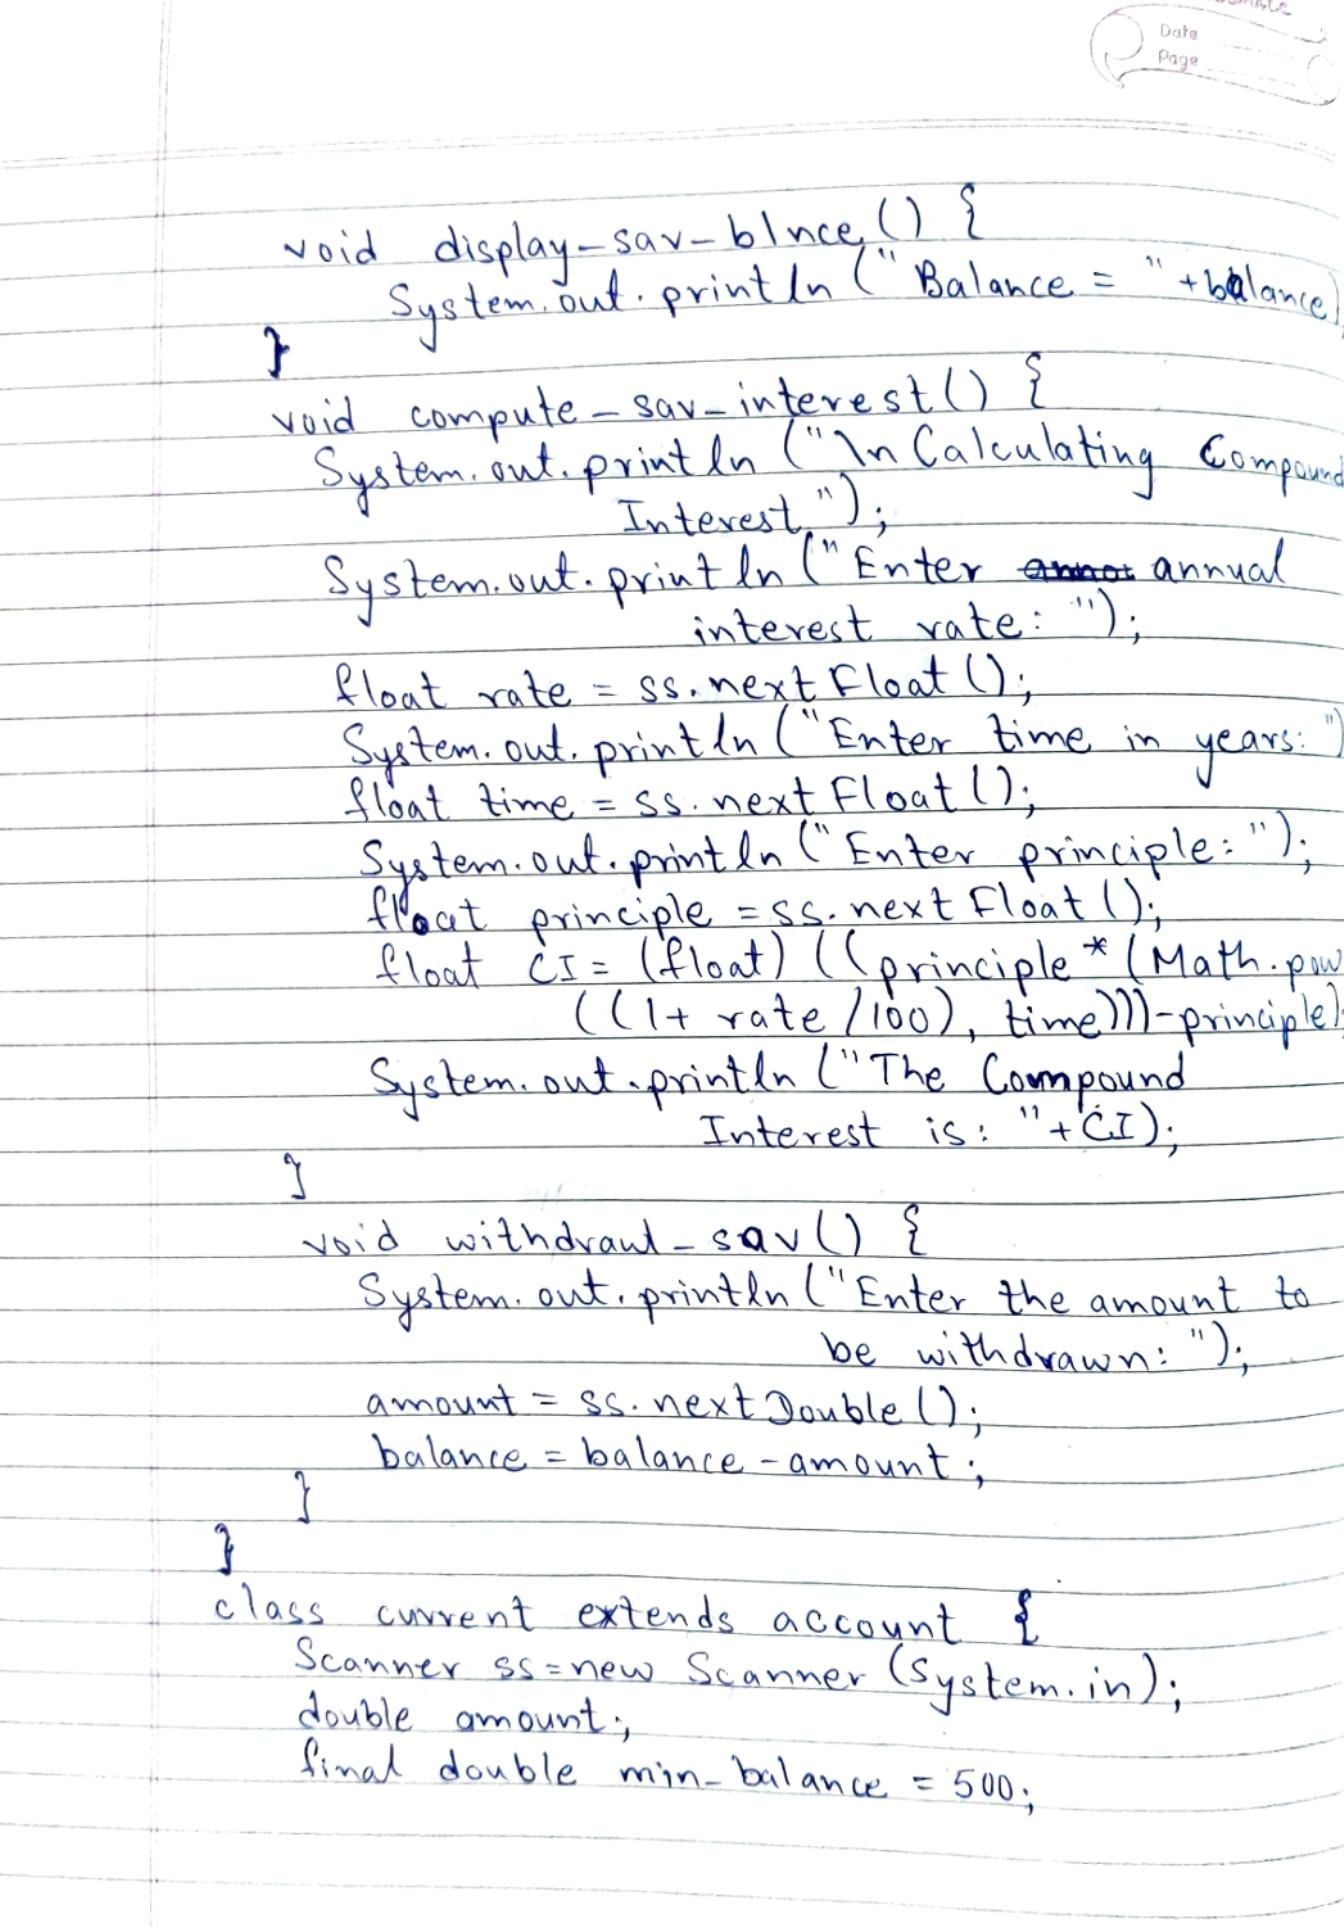 Date
Page
void display_sav_blnce() {
System.out.println("Balance = "+balance)
}
void compute_sav_interest() {
System.out.println("\n Calculating Compound
Interest");
System.out.println("Enter annual
interest rate: ");
float rate = ss.nextFloat();
System.out.println("Enter time in years: ")
float time = ss.nextFloat();
System.out.println("Enter principle: ");
float principle = ss.nextFloat();
float CI = (float) ((principle * (Math.pow
((1+ rate /100), time)))-principle);
System.out.println("The Compound
Interest is: "+CI);
}
void withdrawl_sav() {
System.out.println("Enter the amount to
be withdrawn: ");
amount = ss.nextDouble();
balance = balance - amount;
}
}
class current extends account {
Scanner ss=new Scanner(System.in);
double amount;
final double min_balance = 500;